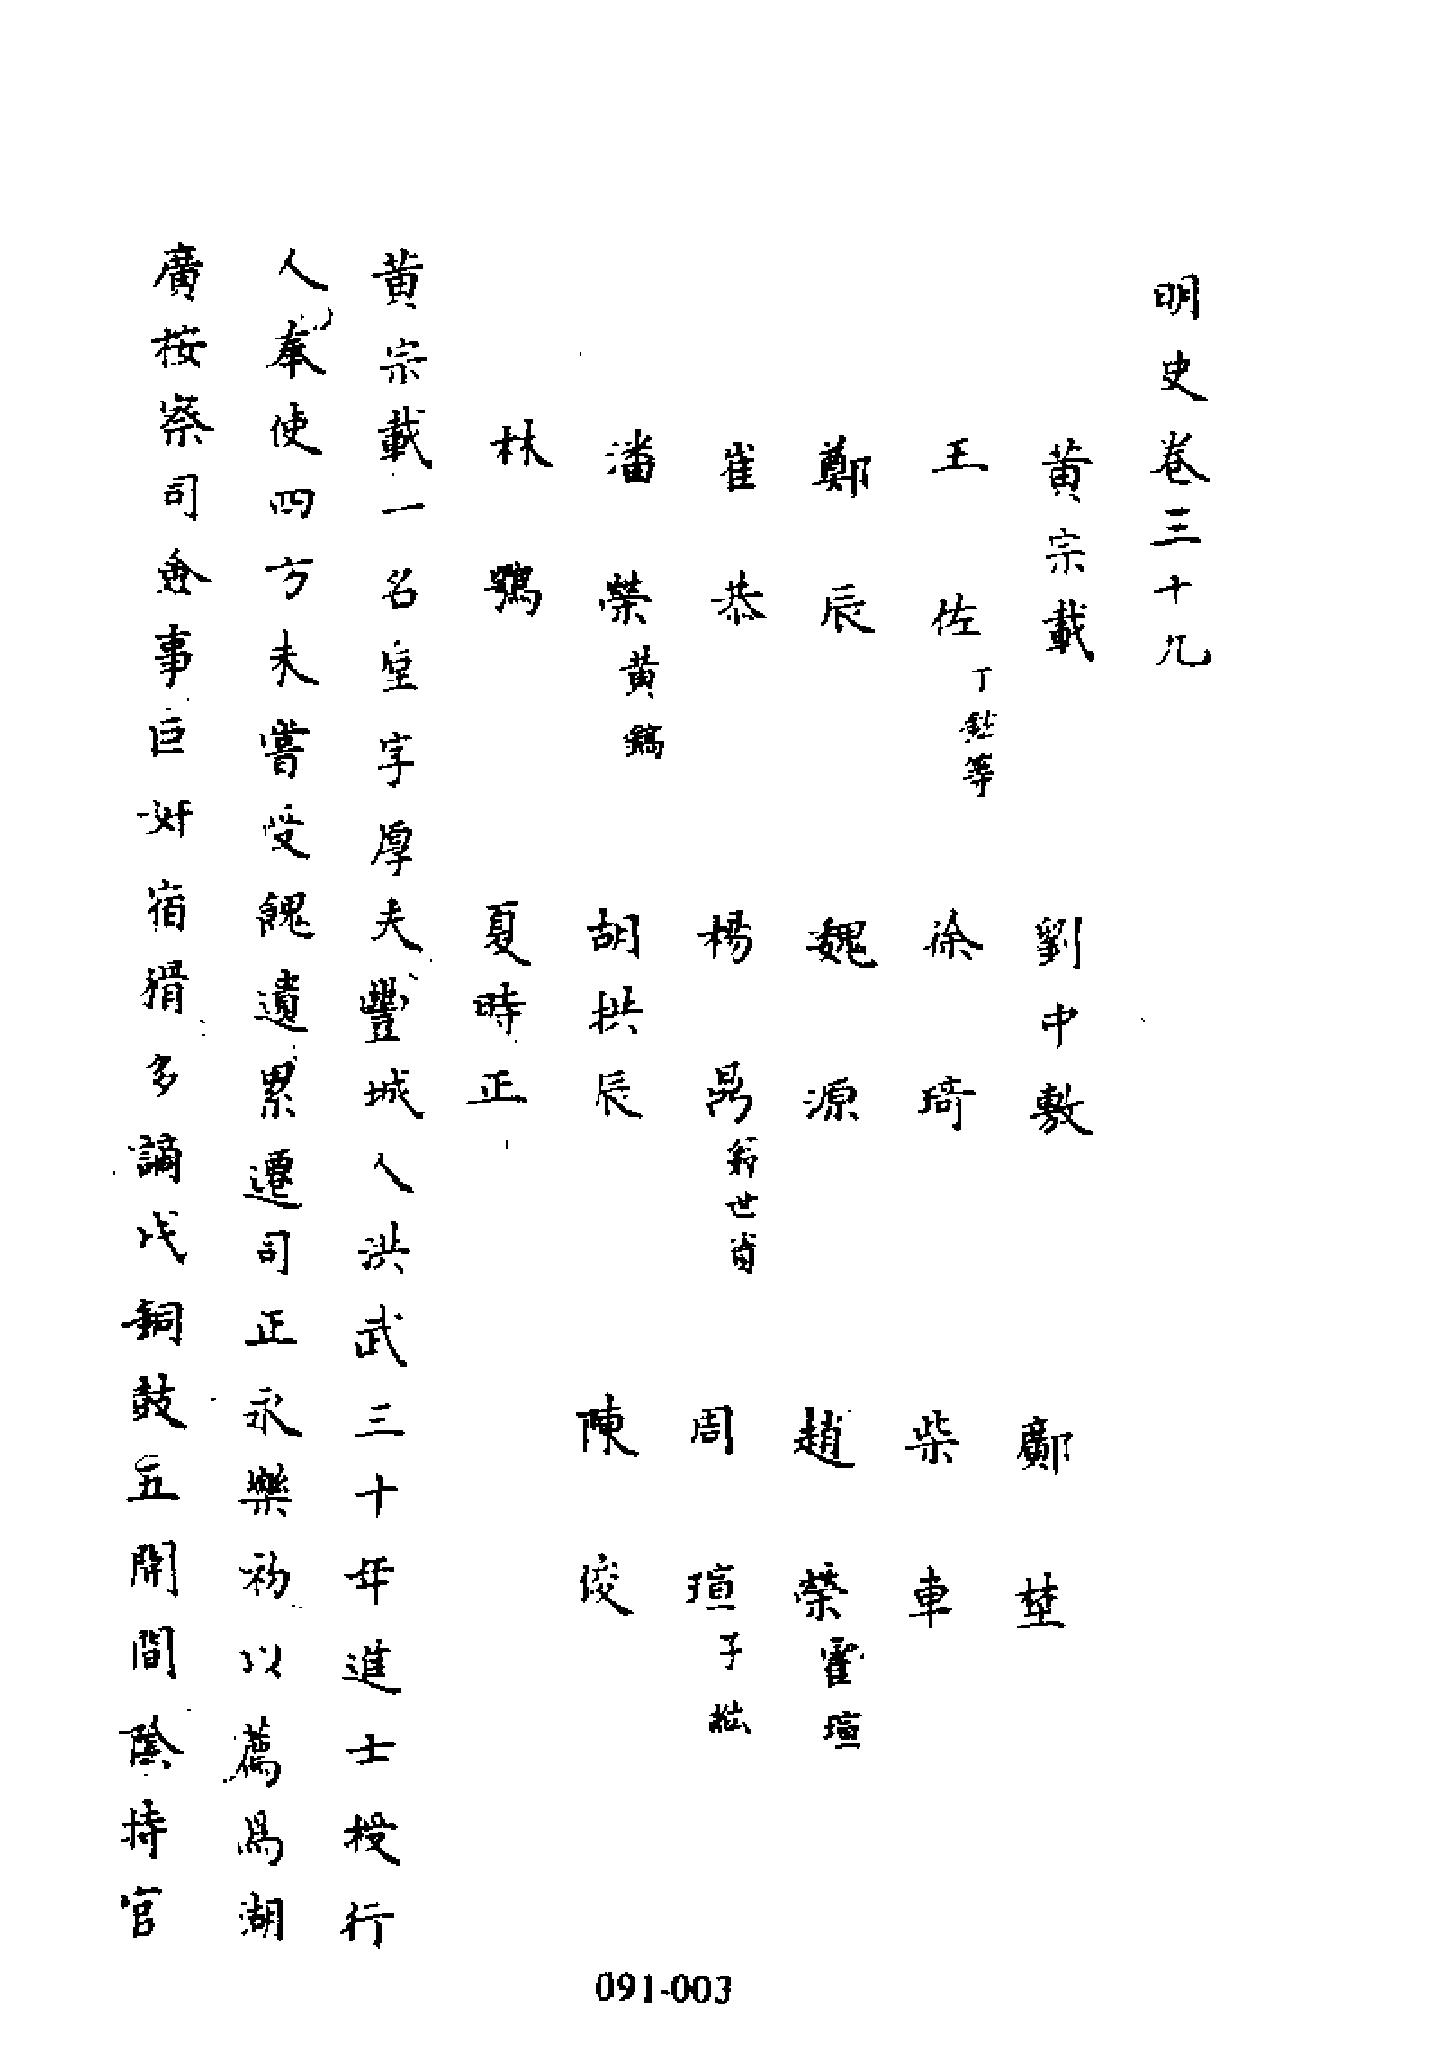 明史卷三十九
黄宗載 劉中敷 鄺埜
王佐丁鉉等 徐琦 柴車
鄭辰 魏源 趙榮霍瑄
崔恭 楊鼎翁世資 周瑄子紘
潘榮黄鎬 胡拱辰 陳俊
林鶚 夏時正
黄宗載一名垕字厚夫豐城人洪武三十年進士授行
人奉使四方未嘗受餽遺累遷司正永樂初以薦爲湖
廣按察司僉事巨奸宿猾多謫戍銅鼓五開間陰持官
091-003